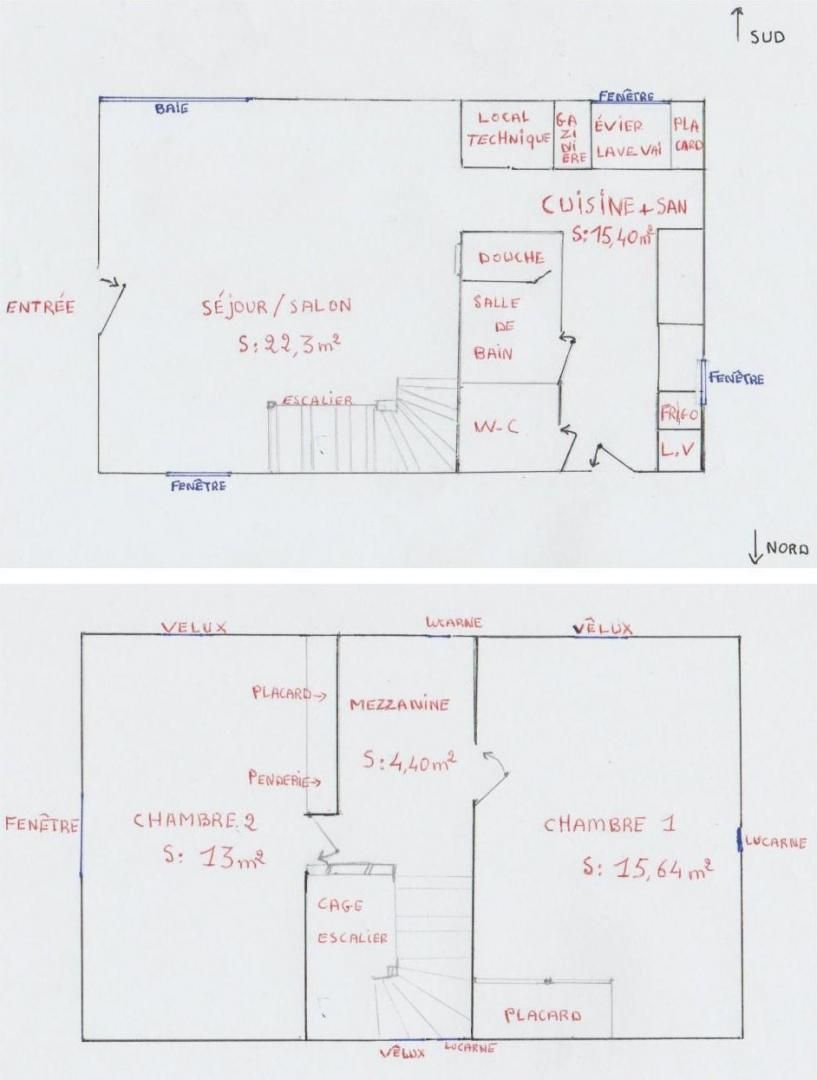 SUD
BAIE
FENÊTRE
LOCAL
TECHNIQUE
GA
ZI
NI
ÈRE
ÉVIER
LAVE VAI
PLA
CARD
CUISINE + SAN
S: 15,40 m²
DOUCHE
ENTRÉE
SÉJOUR / SALON
S: 22,3 m²
SALLE
DE
BAIN
FENÊTRE
ESCALIER
FRIGO
W-C
L.V
FENÊTRE
NORD
VELUX
LUCARNE
VÊLUX
PLACARD→
MEZZANINE
S: 4,40 m²
PENDERIE→
FENÊTRE
CHAMBRE 2
S: 13 m²
CHAMBRE 1
S: 15,64 m²
LUCARNE
CAGE
ESCALIER
PLACARD
VÊLUX
LUCARNE